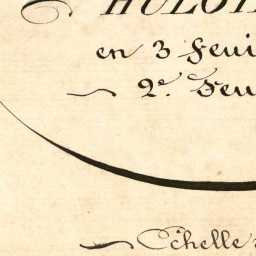 HULOT
en 3 Feui
2e. Feu
Echelle